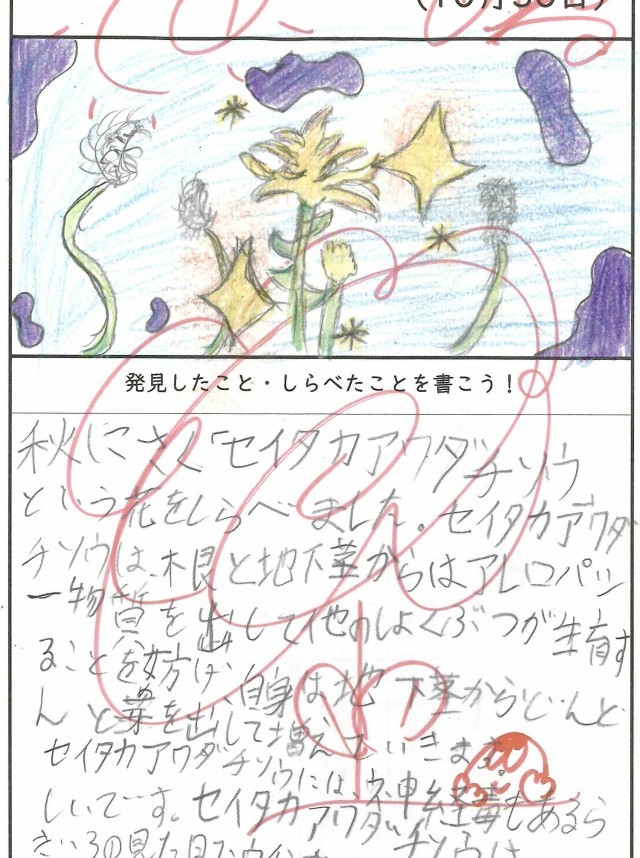 (10月30日)
発見したこと・しらべたことを書こう!
秋にさく「セイタカアワダチソウ
という花をしらべました。セイタカアワダ
チソウは、根と地下茎からはアレロパシ
ー物質を出して他のしょくぶつが生育す
ることを妨げ、自身は地下茎からどんど
んと芽を出して増えていきます。
セイタカアワダチソウには、神経毒もあるら
しいです。セイタカアワダチソウは
きいろの見た目